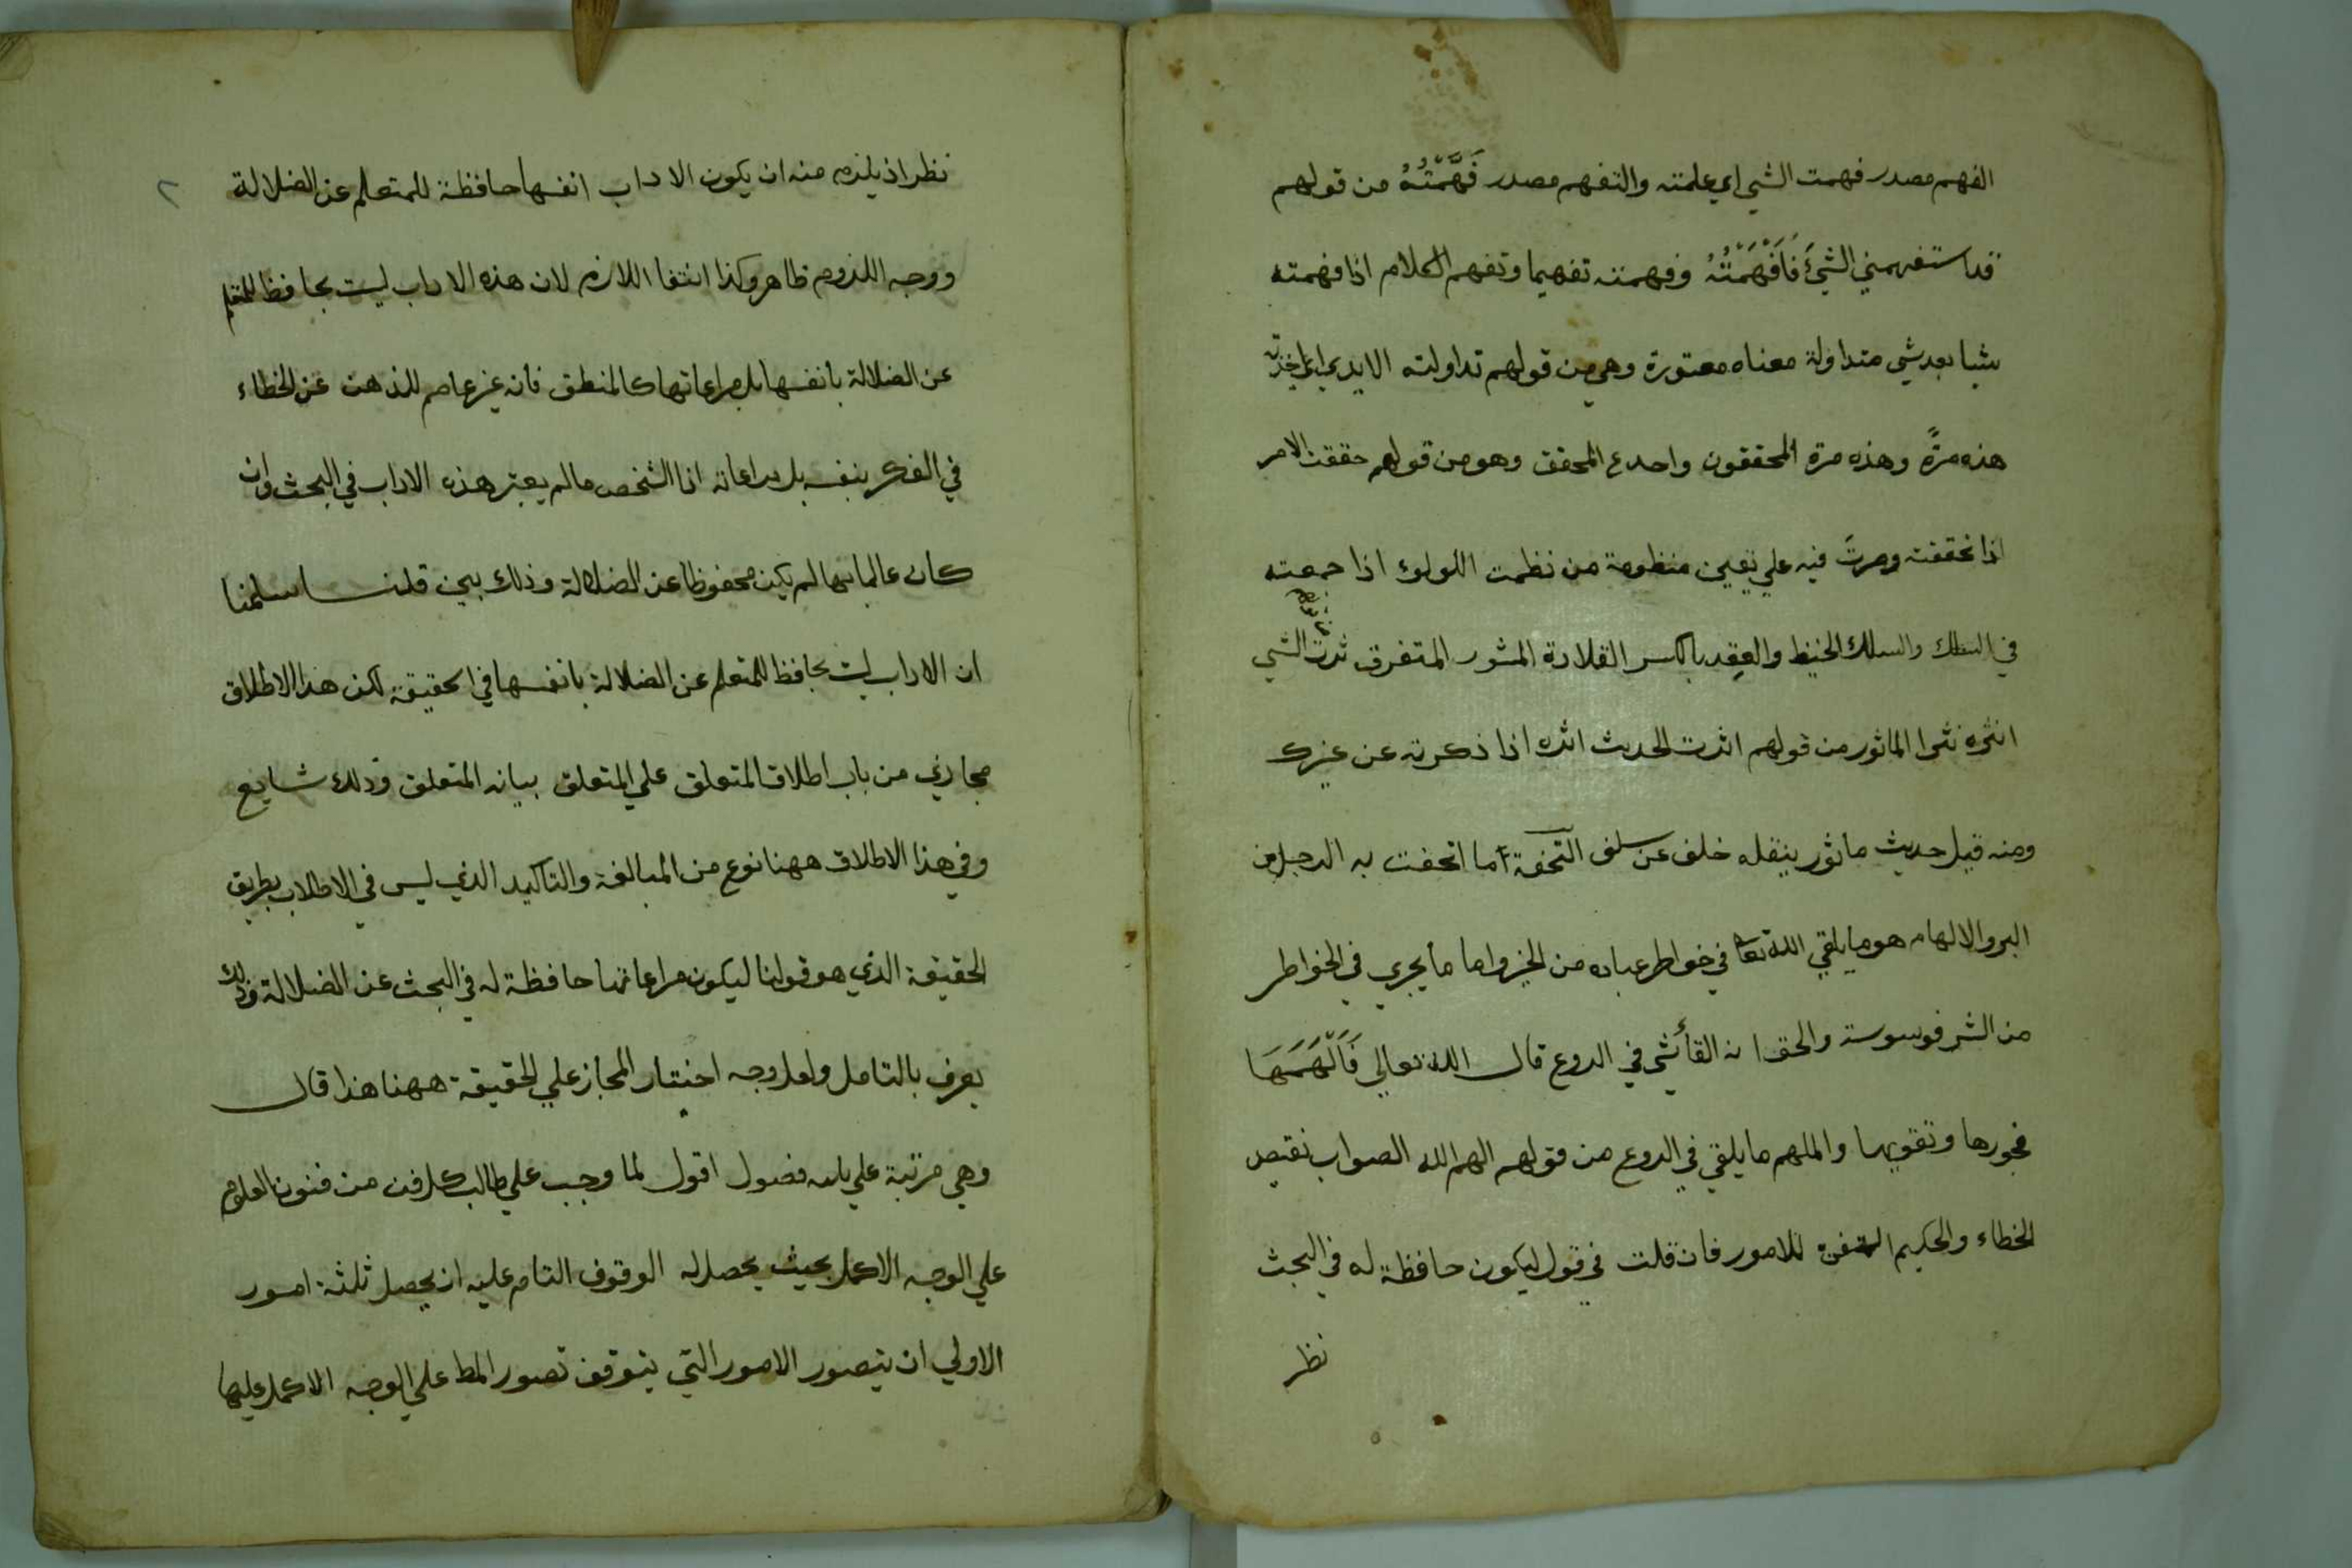 الفهم مصدر فهمت الشي اي علمته والتفهم مصدر فَهَّمْتُهُ من قولهم
قد استفهمني الشئَ فَاَفْهَمْتُهُ وفهمته تفهيما وتفهم الكلام اذا فهمته
شيا بعد شي متداولة معناه معتورة وهي من قولهم تداولته الايدي اي اخذته
هذه مرةً وهذه مرة المحققون واحده المحقق وهو من قولهم حققت الامر
اذا تحققته وصرتَ فيه علي يقين منظومة من نظمت اللولوء اذا جمعته
في السلك والسلك الخيط والعِقد بالكسر القلادة المنثور المتفرق نثرت الشي
انثره نثرا الماثور من قولهم اثرت الحديث اثره اذا ذكرته عن غيرك
ومنه قيل حديث ماثور ينقله خلف عن سلف التحفة ما اتحفت به الرجل من
البر والالهام هو ما يلقي الله تعا في خواطر عباده من الخير واما ما يجري في الخواطر
من الشر فوسوسة والحق انه القأ شي في الروع قال الله تعالي فَاَلْهَمَهَا
فجورها وتقويها والملهم ما يلقي في الروع من قولهم الهم الله الصواب نقيض
الخطاء والحكيم المتقن للامور فان قلت في قول ليكون حافظة له في البحث
نظر
٢
نظر اذ يلزم منه ان يكون الاداب انفسها حافظة للمتعلم عن الضلالة
ووجه اللزوم ظاهر وكذا انتفا اللازم لان هذه الاداب ليست بحافظ للمتعلم
عن الضلالة بانفسها بل مراعاتها كالمنطق فانه غير عاصم للذهن عن الخطاء
في الفكر بنفسه بل مراعاته اذا الشخص ما لم يعتبر هذه الاداب في البحث وان
كان عالما بها لم يكن محفوظا عن الضلالة وذلك بين قلنا سلمنا
ان الاداب ليست بحافظ للمتعلم عن الضلالة بانفسها في الحقيقة لكن هذا الاطلاق
مجازي من باب اطلاق المتعلق علي المتعلق بيانه المتعلق وذلك شايع
وفي هذا الاطلاق ههنا نوع من المبالغة والتاكيد الذي ليس في الاطلاب بطريق
الحقيقة الذي هو قولنا ليكون مراعاتها حافظة له في البحث عن الضلالة وذلك
يعرف بالتامل ولعل وجه اختيار المجاز علي الحقيقة ههنا هذا قال
وهي مرتبة علي ثلثه فصول اقول لما وجب علي طالب كل فن من فنون العلوم
علي الوجه الاكمل بحيث يحصل له الوقوف التام عليه ان يحصل ثلثة امور
الاولي ان يتصور الامور التي يتوقف تصور المط علي الوجه الاكمل عليها